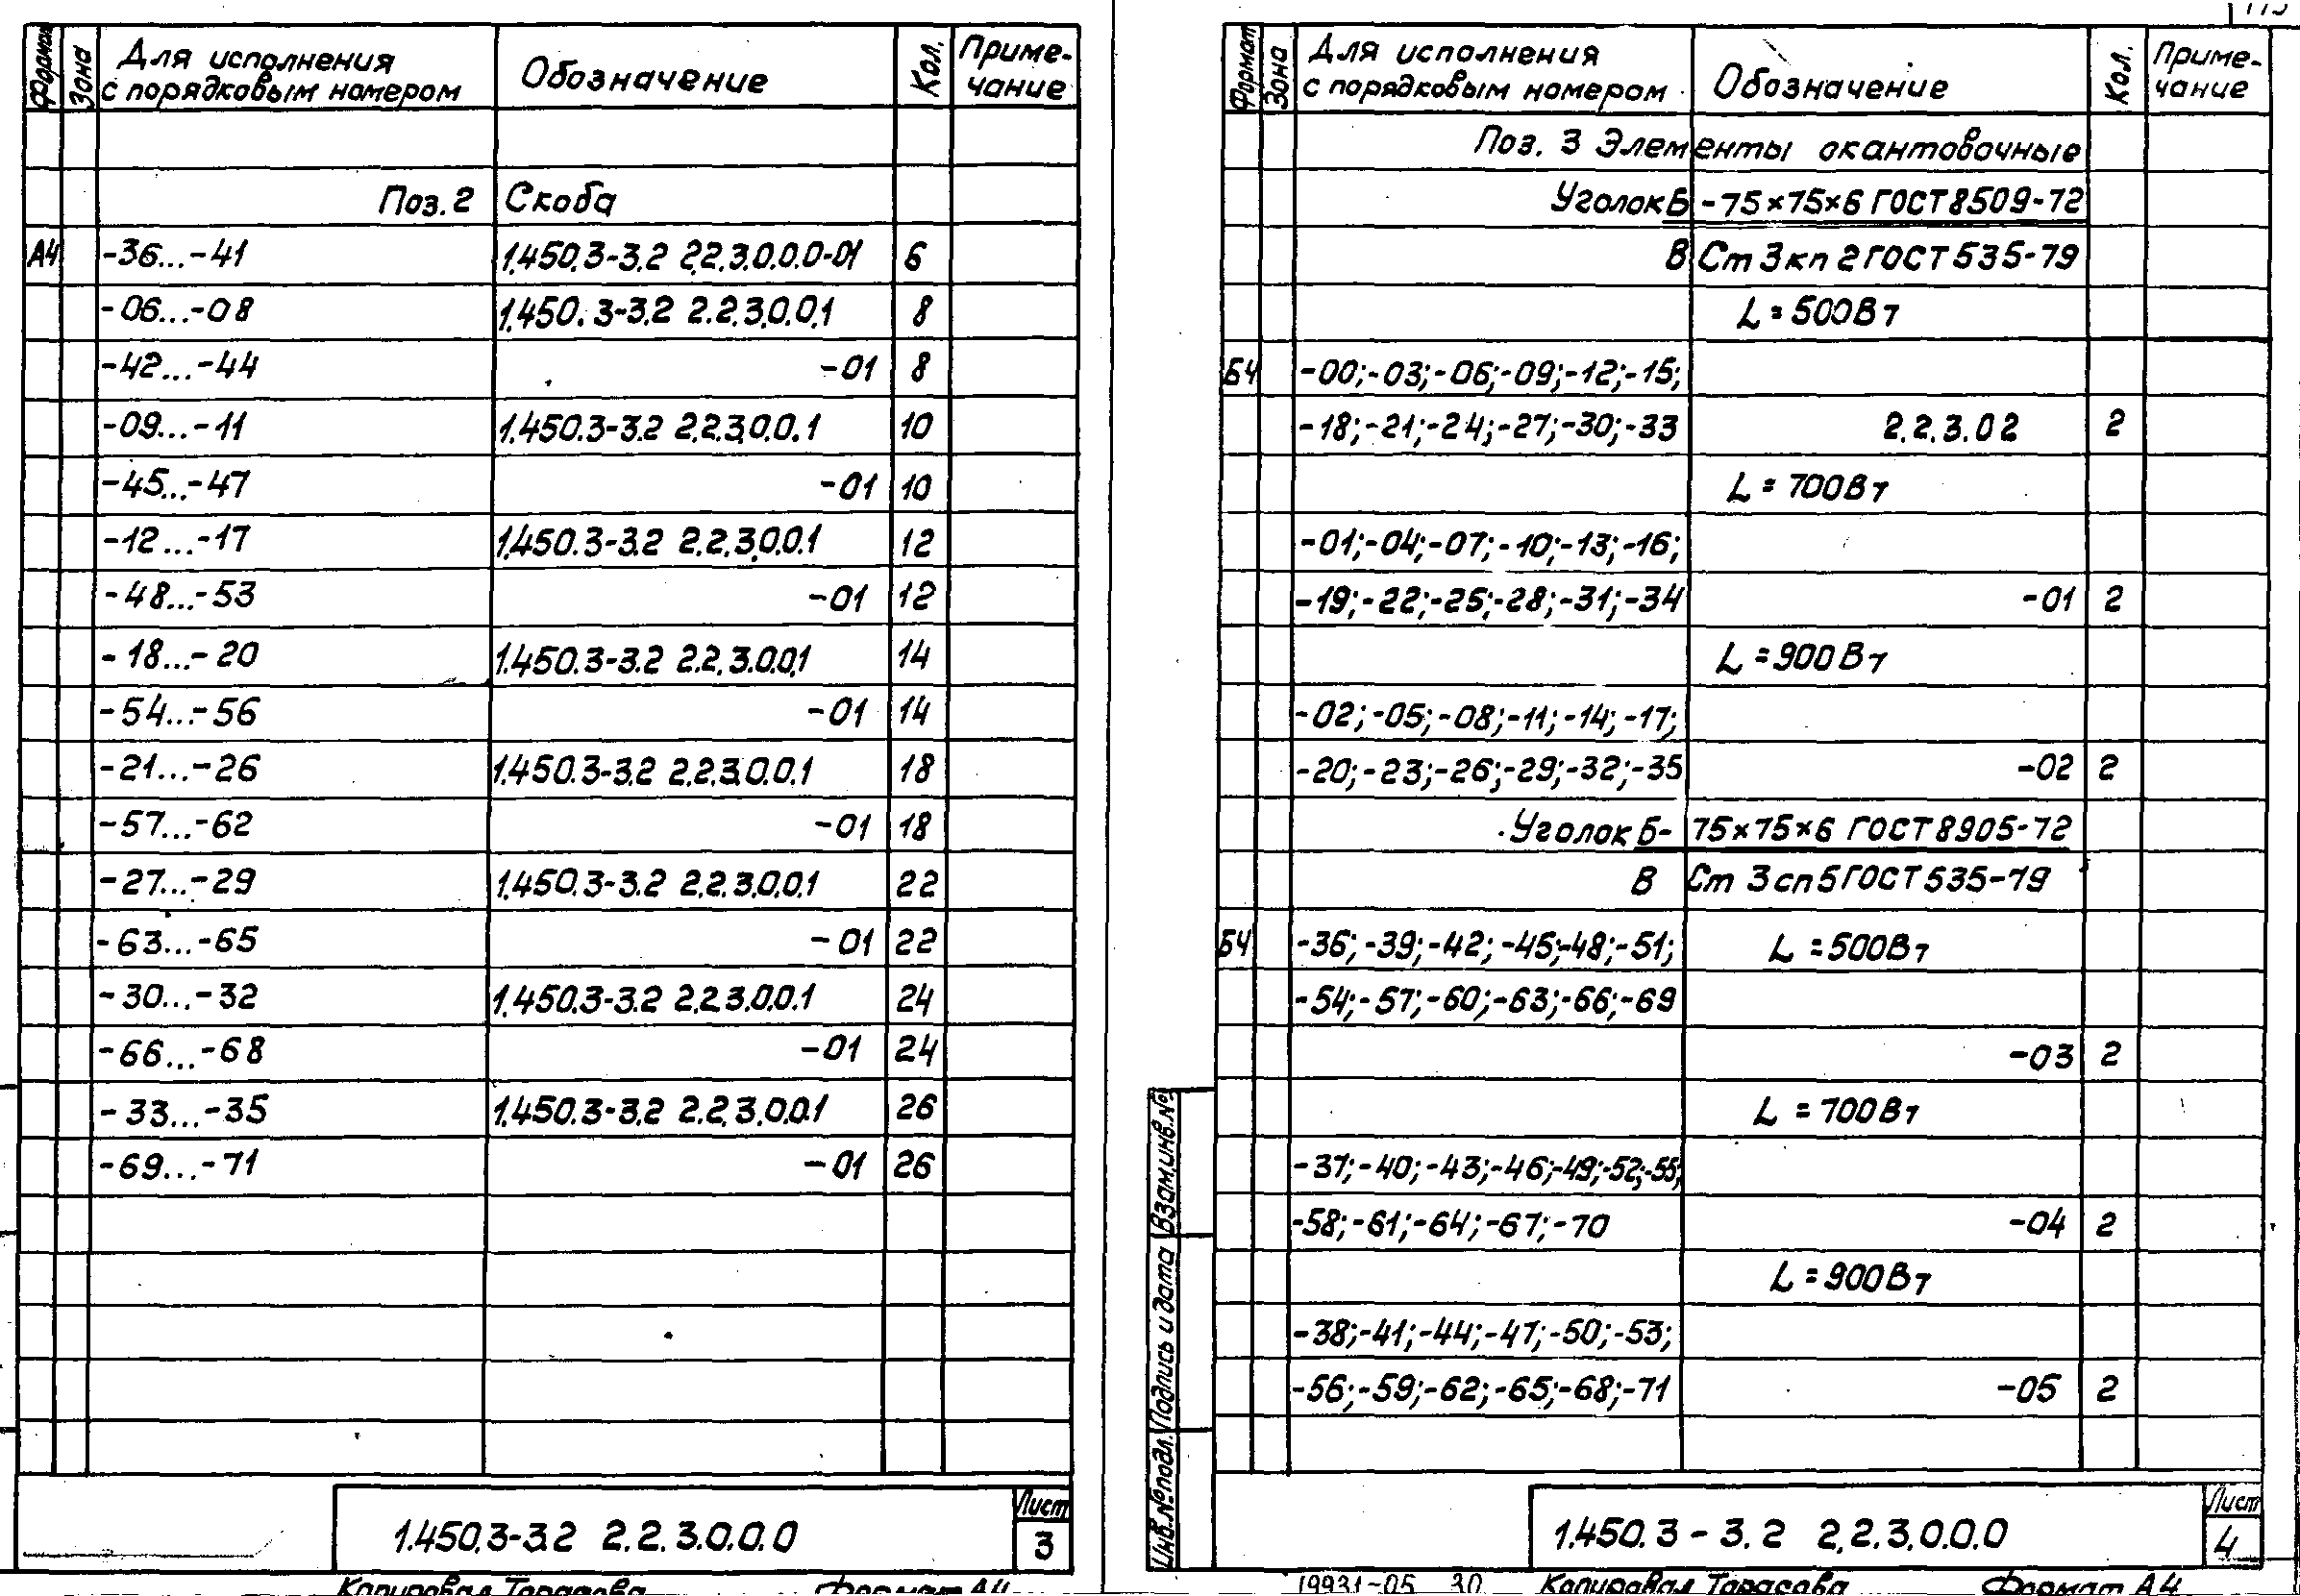 Формат Зона Для исполнения с порядковым номером Обозначение Кол. Приме-чание
Поз. 2 Скоба
А4 -36...-41 1.450.3-3.2 2.2.3.0.0.0-01 6
-06...-08 1.450.3-3.2 2.2.3.0.0.1 8
-42...-44 -01 8
-09...-11 1.450.3-3.2 2.2.3.0.0.1 10
-45...-47 -01 10
-12...-17 1.450.3-3.2 2.2.3.0.0.1 12
-48...-53 -01 12
-18...-20 1.450.3-3.2 2.2.3.0.0.1 14
-54...-56 -01 14
-21...-26 1.450.3-3.2 2.2.3.0.0.1 18
-57...-62 -01 18
-27...-29 1.450.3-3.2 2.2.3.0.0.1 22
-63...-65 -01 22
-30...-32 1.450.3-3.2 2.2.3.0.0.1 24
-66...-68 -01 24
-33...-35 1.450.3-3.2 2.2.3.0.0.1 26
-69...-71 -01 26
1.450.3-3.2 2.2.3.0.0.0
Лист
3
Копировал Тарасова Формат А4
Формат Зона Для исполнения с порядковым номером Обозначение Кол. Приме-чание
Поз. 3 Элементы окантовочные
Уголок Б-75×75×6 ГОСТ 8509-72
В Ст 3 кп 2 ГОСТ 535-79
L = 500Вт
БЧ -00;-03;-06;-09;-12;-15;
-18;-21;-24;-27;-30;-33 2.2.3.02 2
L = 700Вт
-01;-04;-07;-10;-13;-16;
-19;-22;-25;-28;-31;-34 -01 2
L = 900Вт
-02;-05;-08;-11;-14;-17;
-20;-23;-26;-29;-32;-35 -02 2
Уголок Б-75×75×6 ГОСТ 8905-72
В Ст 3 сп 5 ГОСТ 535-79
БЧ -36;-39;-42;-45;-48;-51; L = 500Вт
-54;-57;-60;-63;-66;-69
-03 2
L = 700Вт
-37;-40;-43;-46;-49;-52;-55;
-58;-61;-64;-67;-70 -04 2
L = 900Вт
-38;-41;-44;-47;-50;-53;
-56;-59;-62;-65;-68;-71 -05 2
Инв.№ подл. Подпись и дата Взам.инв.№
1.450.3-3.2 2.2.3.0.0.0
Лист
4
19931-05 30 Копировал Тарасова Формат А4